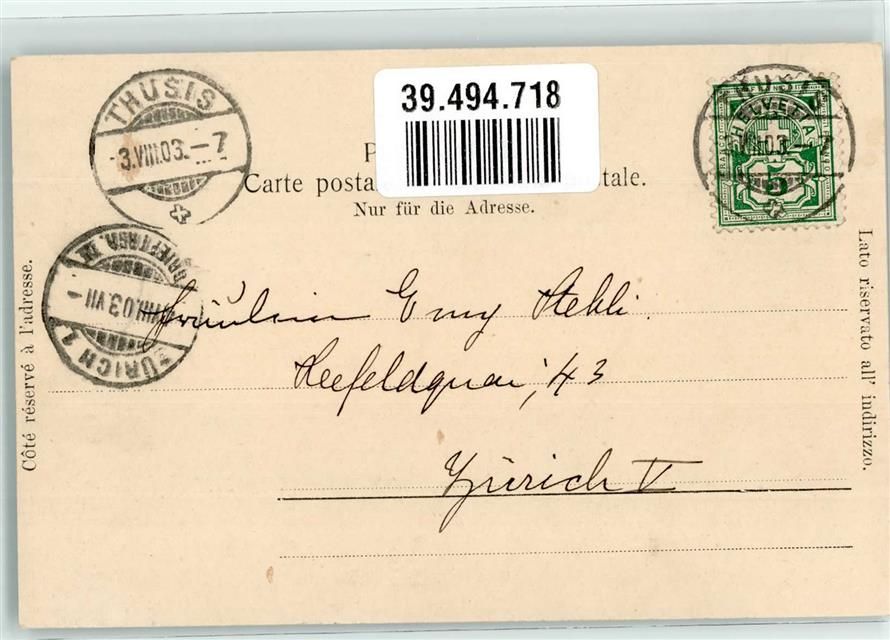 39.494.718
THUSIS
3.VIII.03.-7
THUSIS
HELVETIA
VIII.03.-7
5
Carte posta
tale.
Nur für die Adresse.
BRIEFTRÄG.
VIII.03.VII
ZÜRICH 1
Fräulein Emy Stehli.
Seefeldquai, 43
Zürich V
Côté réservé à l'adresse.
Lato riservato all' indirizzo.